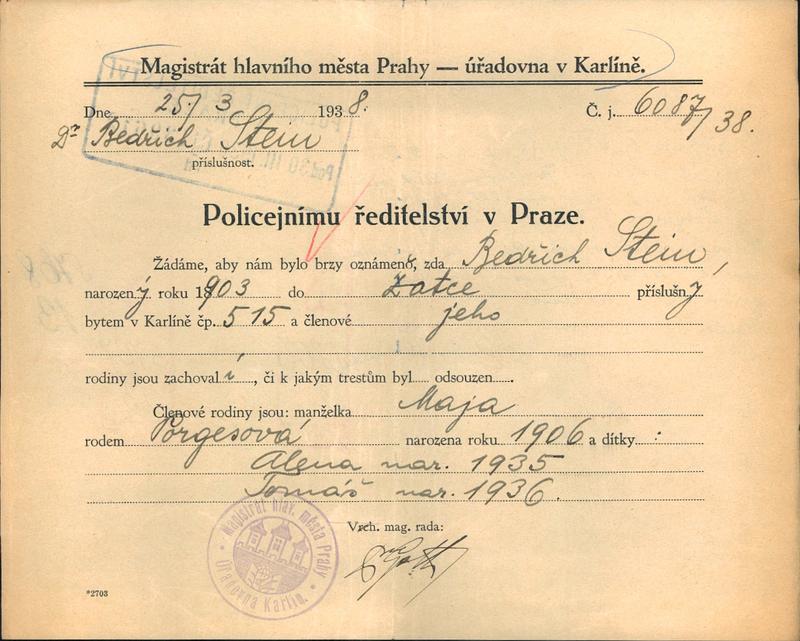 Magistrát hlavního města Prahy — úřadovna v Karlíně.
Dne 25/3 1938. Č. j. 6087/38.
Dr Bedřich Stein
příslušnost.
Policejnímu ředitelství v Praze.
Žádáme, aby nám bylo brzy oznámeno, zda Bedřich Stein,
narozený roku 1903 do Žatce příslušný
bytem v Karlíně čp. 515 a členové jeho
rodiny jsou zachovalí, či k jakým trestům byl odsouzen
Členové rodiny jsou: manželka Maja
rodem Porgesová narozena roku 1906 a dítky:
Alena nar. 1935
Tomáš nar. 1936.
Vrch. mag. rada:
Magistrát hlav. města Prahy
Úřadovna Karlín.
*2703